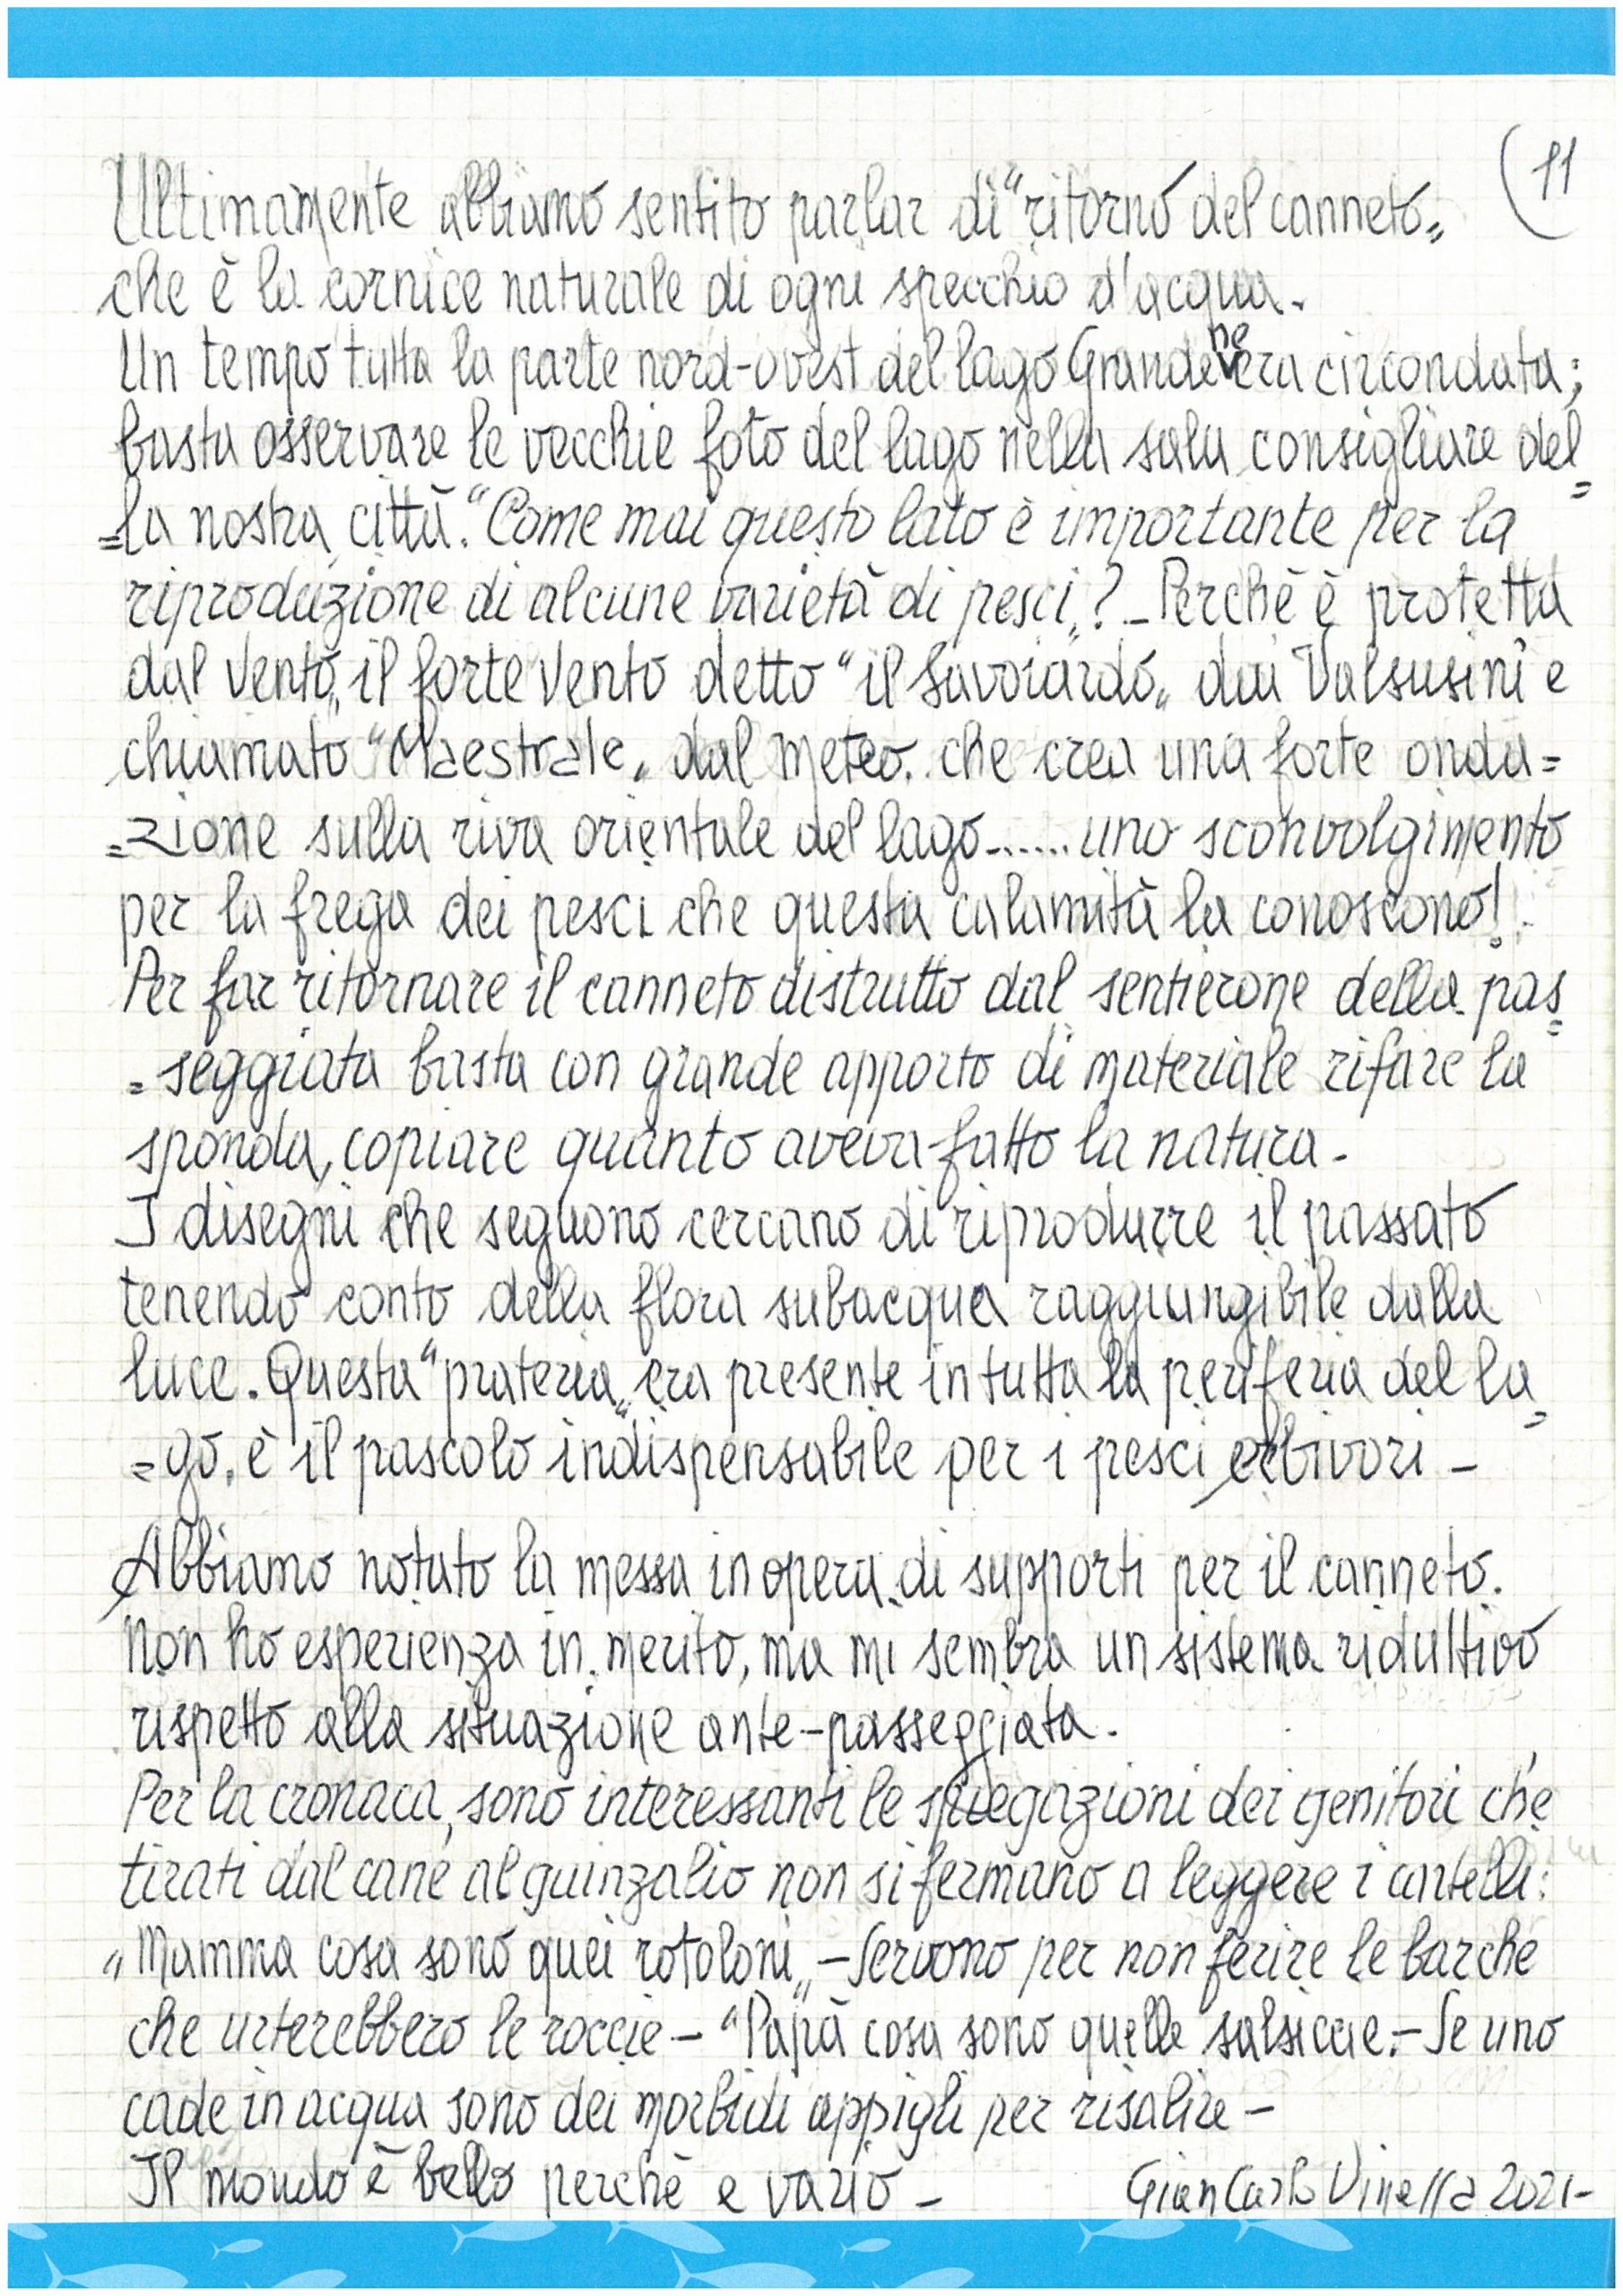 11
Ultimamente abbiamo sentito parlar di "ritorno del canneto„
che è la cornice naturale di ogni specchio d'acqua.
Un tempo tutta la parte nord-ovest del lago Grande ne era circondata;
basta osservare le vecchie foto del lago nella sala consigliare del=
=la nostra città. "Come mai questo lato è importante per la
riproduzione di alcune varietà di pesci„? - Perchè è protetta
dal vento, il forte vento detto "il Savoiardo„ dai Valsusini e
chiamato "Maestrale„ dal meteo. che crea una forte onda=
=zione sulla riva orientale del lago...... uno sconvolgimento
per la frega dei pesci che questa calamità la conoscono!
Per far ritornare il canneto distrutto dal sentierone della pas=
=seggiata basta con grande apporto di materiale rifare la
sponda, copiare quanto aveva fatto la natura -
I disegni che seguono cercano di riprodurre il passato
tenendo conto della flora subacquea raggiungibile dalla
luce. Questa "prateria„ era presente in tutta la periferia del la=
=go. è il pascolo indispensabile per i pesci erbivori -
Abbiamo notato la messa in opera di supporti per il canneto.
Non ho esperienza in merito, ma mi sembra un sistema riduttivo
rispetto alla situazione ante-passeggiata.
Per la cronaca, sono interessanti le spiegazioni dei genitori che
tirati dal cane al guinzalio non si fermano a leggere i cartelli:
"Mamma cosa sono quei rotoloni„ - Servono per non ferire le barche
che urterebbero le roccie - "Papà cosa sono quelle salsiccie. - Se uno
cade in acqua sono dei morbidi appigli per risalire -
Il mondo è bello perchè e vario -
GianCarlo Vinella 2021-